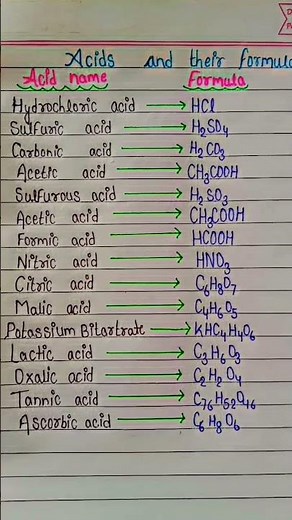 Acids and their formula
Acid name Formula
Hydrochloric acid → HCl
Sulfuric acid → H₂SO₄
Carbonic acid → H₂CO₃
Acetic acid → CH₃COOH
Sulfurous acid → H₂SO₃
Acetic acid → CH₃COOH
Formic acid → HCOOH
Nitric acid → HNO₃
Citric acid → C₆H₈O₇
Malic acid → C₄H₆O₅
Potassium Bitartrate → KHC₄H₄O₆
Lactic acid → C₃H₆O₃
Oxalic acid → C₂H₂O₄
Tannic acid → C₇₆H₅₂O₄₆
Ascorbic acid → C₆H₈O₆